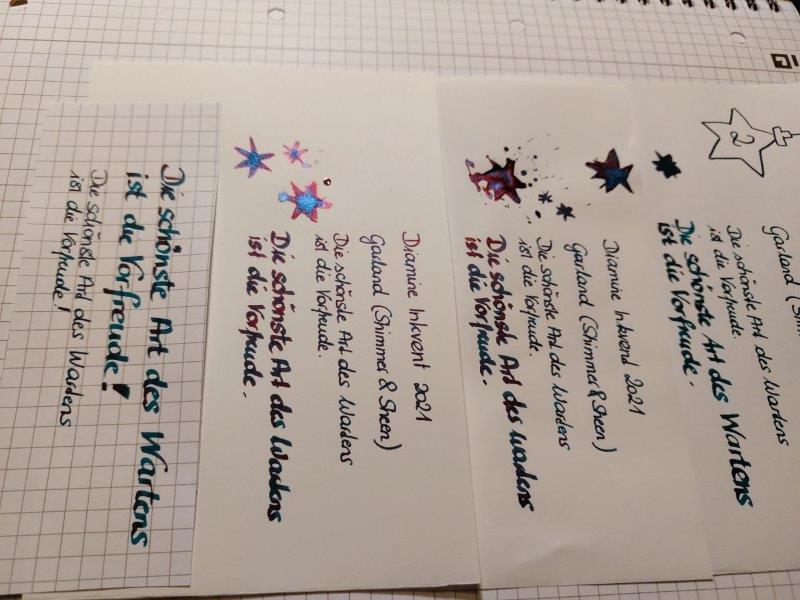 2
Garland (Shim
Die schönste Art des Wartens
ist die Vorfreude.
Die schönste Art des Wartens
ist die Vorfreude.
Diamine Inkvent 2021
Garland (Shimmer & Sheen)
Die schönste Art des Wartens
ist die Vorfreude.
Die schönste Art des Wartens
ist die Vorfreude.
Diamine Inkvent 2021
Garland (Shimmer & Sheen)
Die schönste Art des Wartens
ist die Vorfreude.
Die schönste Art des Wartens
ist die Vorfreude.
Die schönste Art des Wartens
ist die Vorfreude!
Die schönste Art des Wartens
ist die Vorfreude!